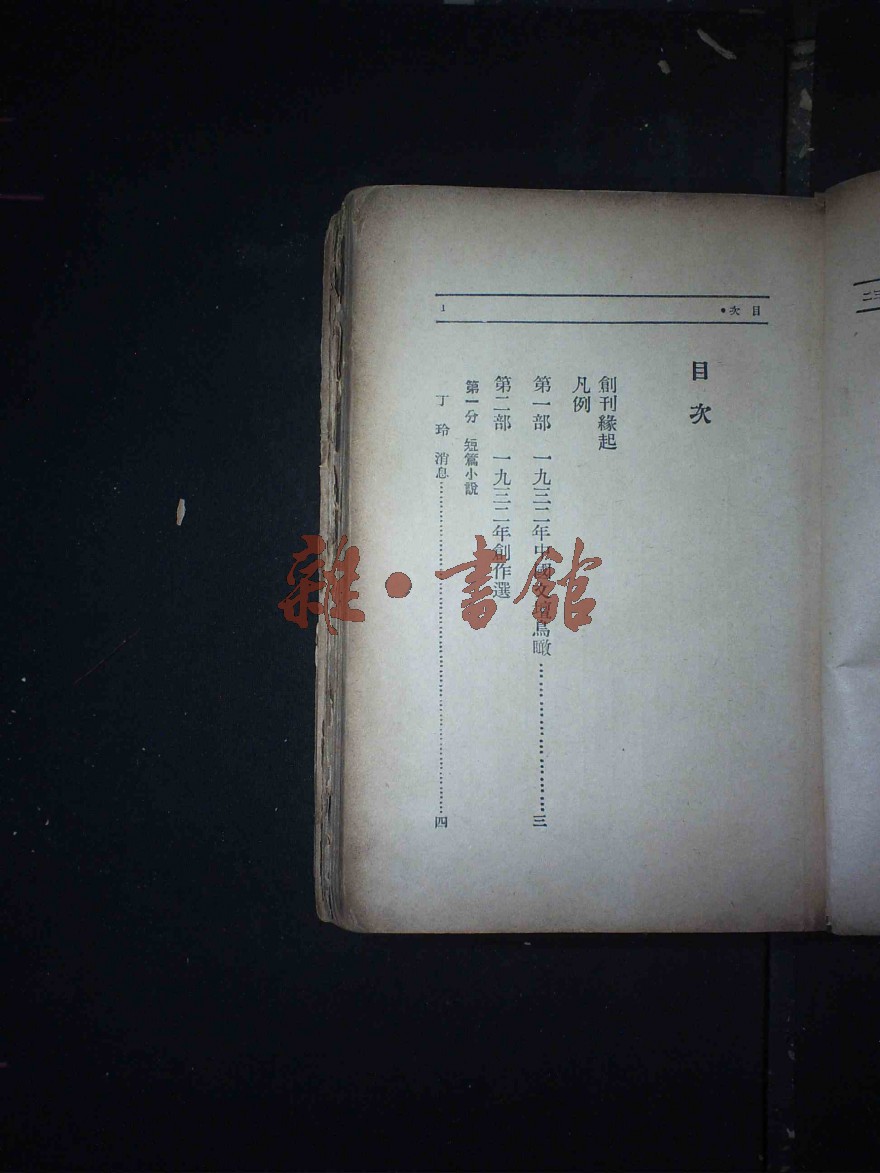 目次•
1
目次
創刊緣起
凡例
第一部 一九三二年中國文壇鳥瞰……………………三
第二部 一九三二年創作選
第一分 短篇小說
丁玲 消息……………………四
雜•書館